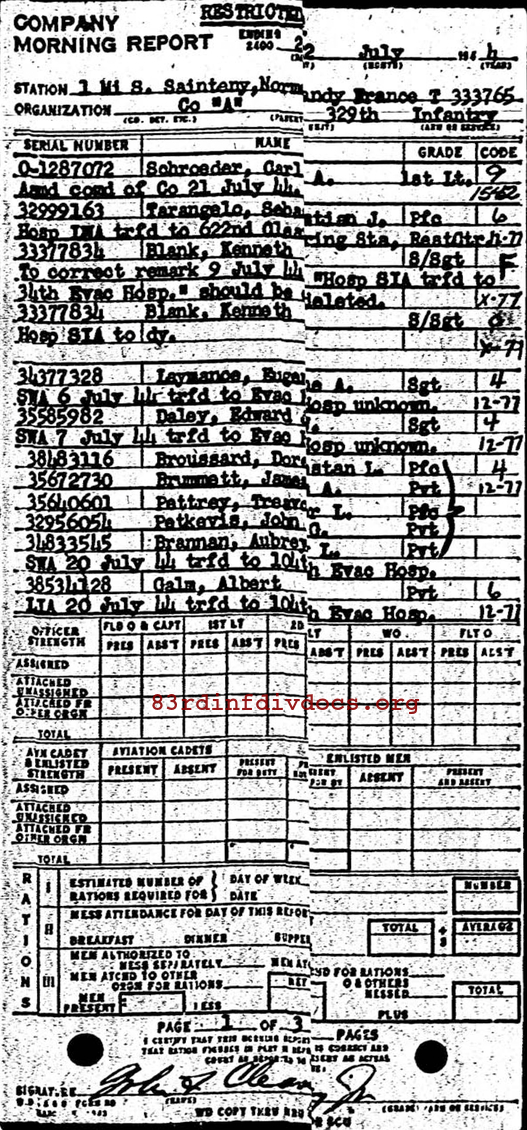 RESTRICTED
COMPANY
MORNING REPORT ENDING 2400 22 July 194 4
(MONTH) (YEAR)
STATION 1 Mi S. Sainteny, Normandy France T 333765
ORGANIZATION Co "A" 329th Infantry
(CO. DET. ETC.) (ARM OR SERVICE)
SERIAL NUMBER NAME GRADE CODE
O-1287072 Schroeder, Carl A. 1st Lt. 9
Asmd comd of Co 21 July 44. 1542
32999163 Tarangelo, Sebastian J. Pfc 6
Hosp LWA trfd to 622nd Clearing Sta, RestCtr. 4-77
33377834 Blank, Kenneth S/Sgt F
To correct remark 9 July 44 "Hosp SIA trfd to
34th Evac Hosp." should be deleted. X-77
33377834 Blank, Kenneth S/Sgt
Hosp SIA to dy. X-77
34377328 Laymance, Eugene A. Sgt 4
SWA 6 July 44 trfd to Evac Hosp unknown. 12-77
35585982 Daley, Edward Sgt 4
SWA 7 July 44 trfd to Evac Hosp unknown. 12-77
38483116 Broussard, Dorestan L. Pfc 4
35672730 Brummett, James A. Pvt 12-77
35640601 Pettrey, Treavor L. Pfc
32956054 Petkevis, John G. Pvt
34833545 Brannan, Aubrey L. Pvt
SWA 20 July 44 trfd to 104th Evac Hosp.
38534128 Galm, Albert Pvt 6
LIA 20 July 44 trfd to 104th Evac Hosp. 12-77
OFFICER STRENGTH FLD O & CAPT 1ST LT 2D LT WO FLT O
PRES ABST PRES ABST PRES ABST PRES ABST PRES ABST
ASSIGNED
ATTACHED UNASSIGNED
ATTACHED FR OTHER ORGN
83rdinfdivdocs.org
TOTAL
AVN CADET & ENLISTED STRENGTH AVIATION CADETS ENLISTED MEN
PRESENT ABSENT PRESENT FOR DUTY ABSENT PRESENT AND ABSENT
ASSIGNED
ATTACHED UNASSIGNED
ATTACHED FR OTHER ORGN
TOTAL
RATIONS
I ESTIMATED NUMBER OF RATIONS REQUIRED FOR DAY OF WEEK DATE NUMBER
II MESS ATTENDANCE FOR DAY OF THIS REPORT
BREAKFAST DINNER SUPPER TOTAL ÷ 3 AVERAGE
III MEN AUTHORIZED TO MESS SEPARATELY
MEN ATCHD TO OTHER ORGN FOR RATIONS
MEN PRESENT LESS NET
FOR RATIONS
O & OTHERS MESSED
PLUS TOTAL
PAGE 1 OF 3 PAGES
I CERTIFY THAT THIS MORNING REPORT IS CORRECT AND
SIGNATURE John F. Cleary Jr
(NAME) (GRADE) (ARM OR SERVICE)
WD COPY THRU MRU